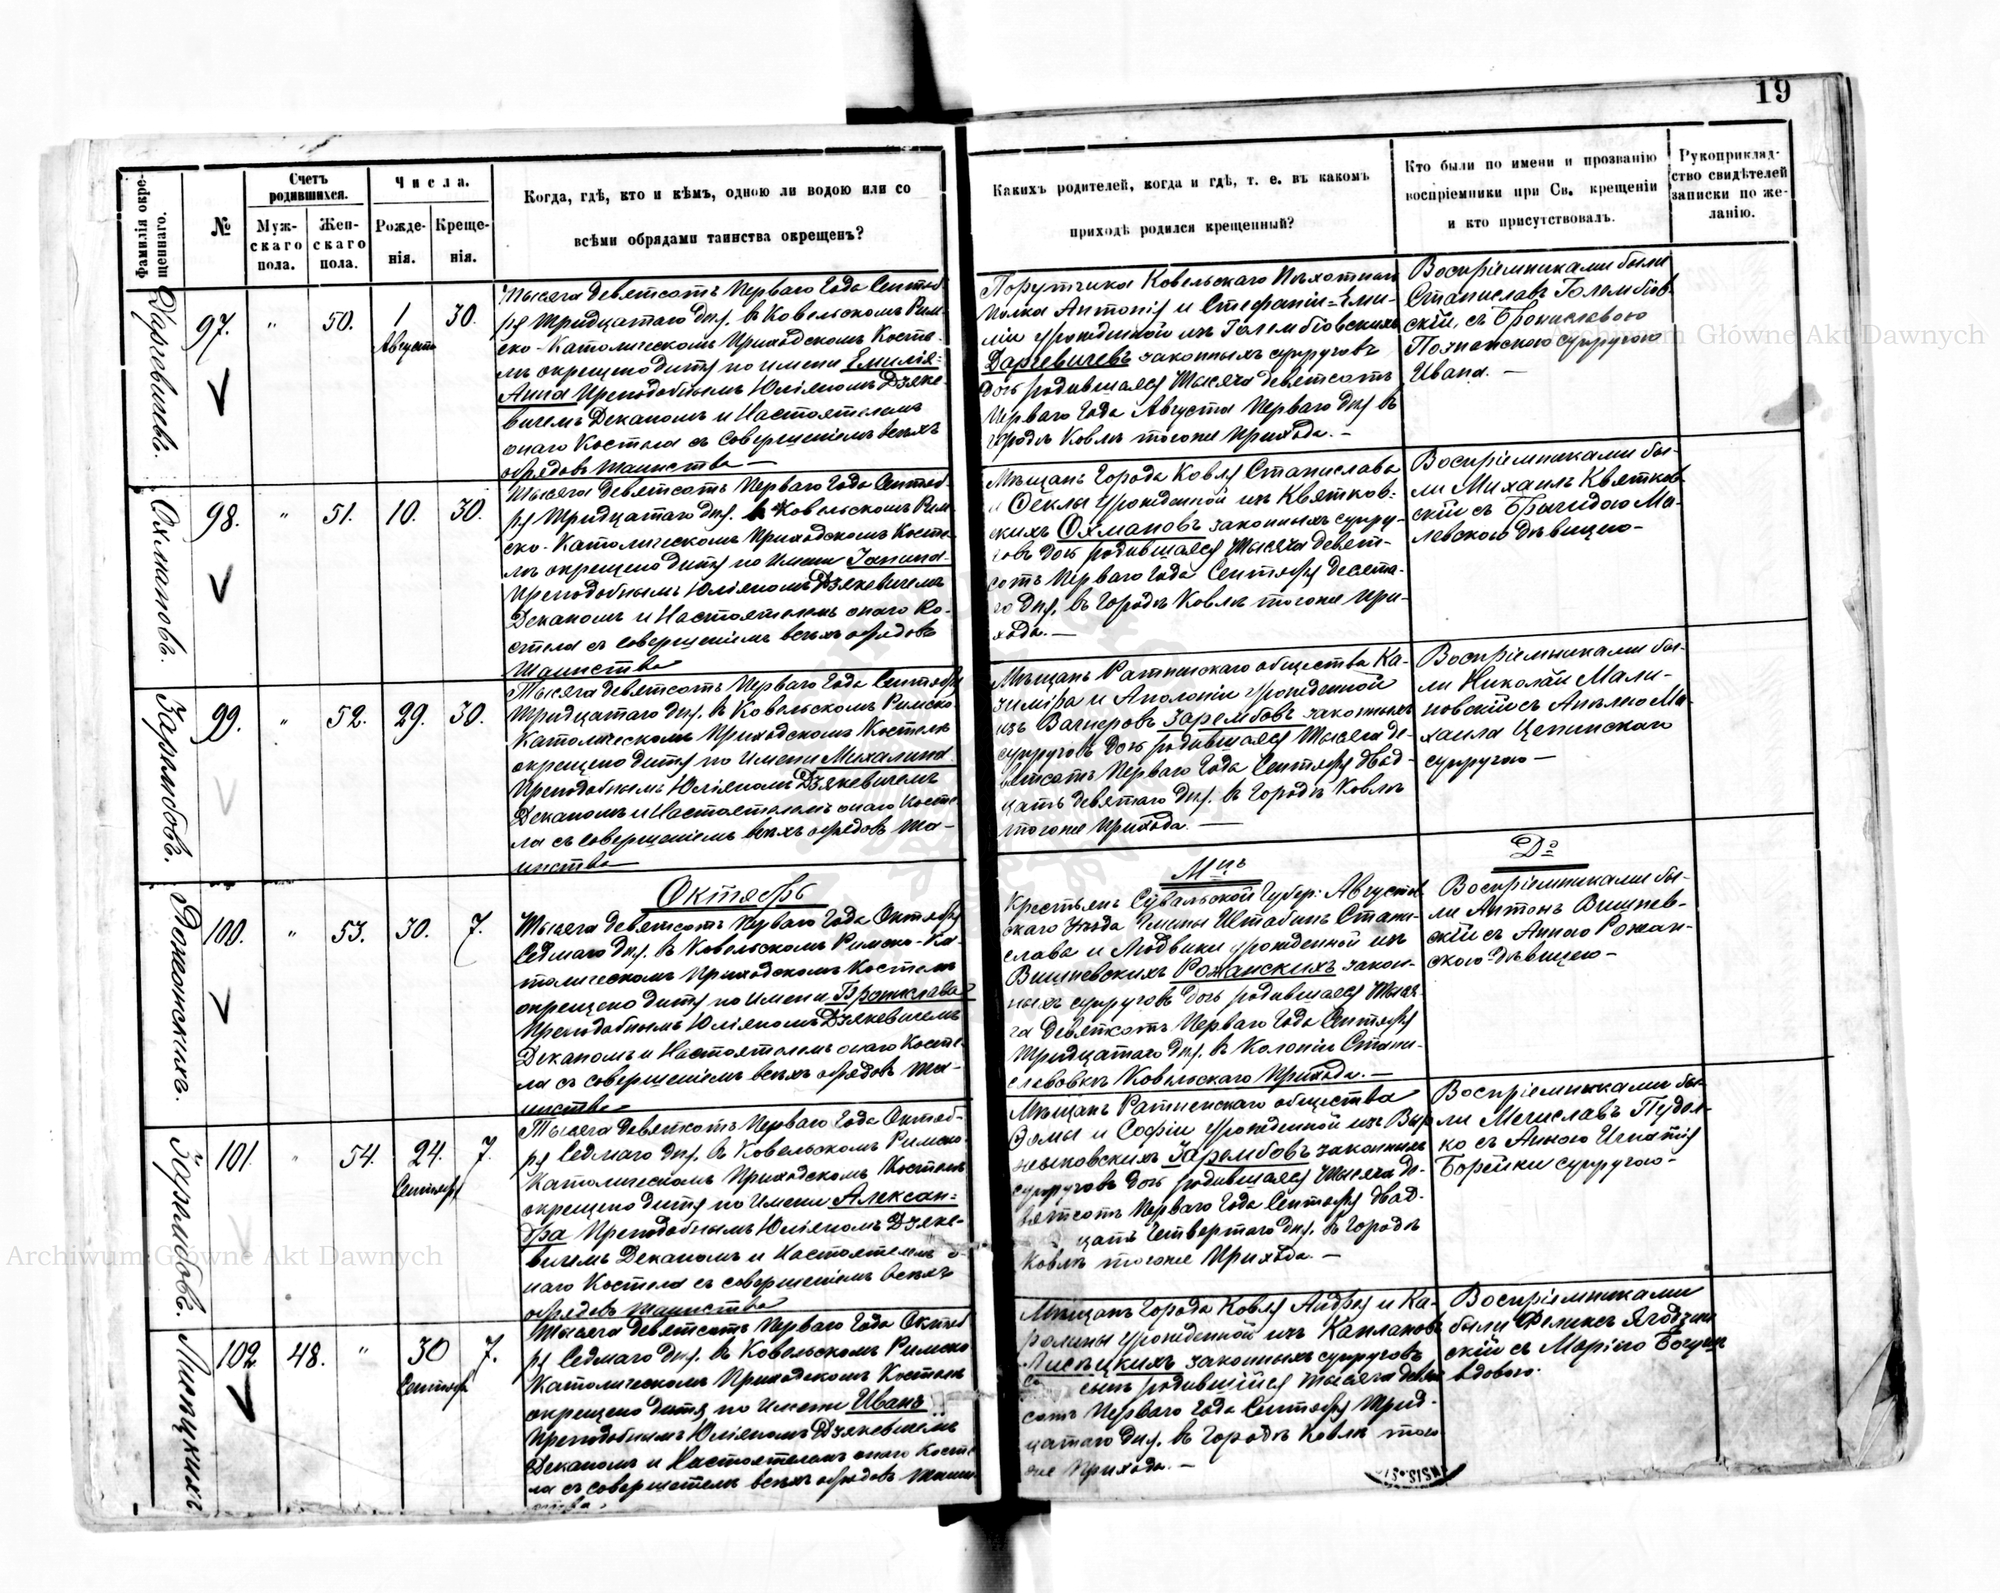 19
Фамилія окрещеннаго.
№
Счетъ родившихся.
Мужскаго пола.
Женскаго пола.
Числа.
Рожденія.
Крещенія.
Когда, гдѣ, кто и кѣмъ, одною ли водою или со
всѣми обрядами таинства окрещенъ?
Какихъ родителей, когда и гдѣ, т. е. въ какомъ
приходѣ родился крещенный?
Кто были по имени и прозванію
воспріемники при Св. крещеніи
и кто присутствовалъ.
Рукоприклад-
ство свидѣтелей
записки по же-
ланію.
97.
"
50.
1
Августа
30.
Тысяча девятсотъ перваго года Сентяб-
ря тридцатаго дня. въ Ковельскомъ Рим-
ско-Католическомъ Приходскомъ Косте-
лѣ окрещено дитя по имени Емилія=
Анна Преподобнымъ Юліяномъ Дзяке-
вичемъ Деканомъ и Настоятелемъ
онаго Костела съ совершеніемъ всѣхъ
обрядовъ таинства —
Порутчика Ковельскаго Пѣхотнаго
полка Антонія и Стефаніи=Еми-
ліи урожденной изъ Голембіовскихъ
Даргевичевъ законныхъ супруговъ
дочь родившаяся тысяча девятсотъ
перваго года Августа перваго дня въ
городѣ Ковлѣ тогоже прихода. —
Воспріемниками были
Станиславъ Голембіов-
скій, съ Брониславою
Познанскою супругою
Ивана. —
Охмановъ.
98.
"
51.
10.
30.
Тысяча девятсотъ перваго года Сентяб-
ря тридцатаго дня. въ Ковельскомъ Рим-
ско-Католическомъ Приходскомъ Косте-
лѣ окрещено дитя по имени Янина
Преподобнымъ Юліяномъ Дзякевичемъ
Деканомъ и Настоятелемъ онаго Ко-
стела съ совершеніемъ всѣхъ обрядовъ
таинства
Мѣщанъ города Ковля Станислава
и Феклы урожденной изъ Квятков-
скихъ Охмановъ законныхъ супру-
говъ дочь родившаяся тысяча девят-
сотъ перваго года Сентября десята-
го дня, въ городѣ Ковлѣ тогоже при-
хода. —
Воспріемниками бы-
ли Михаилъ Квятков-
скій съ Бригидою Ма-
левскою дѣвицею —
Зарембовъ.
99.
"
52.
29.
30.
Тысяча девятсотъ перваго года Сентября
тридцатаго дня. въ Ковельскомъ Римско-
Католическомъ Приходскомъ Костелѣ
окрещено дитя по имени Михалина
Преподобнымъ Юліяномъ Дзякевичемъ
Деканомъ и Настоятелемъ онаго Косте-
ла съ совершеніемъ всѣхъ обрядовъ та-
инства
Мѣщанъ Ратненскаго общества Ка-
зиміра и Аполоніи урожденной
изъ Вагнеровъ Зарембовъ законныхъ
супруговъ дочь родившаяся тысяча де-
вятсотъ перваго года Сентября двад-
цать девятаго дня. въ городѣ Ковлѣ
тогоже прихода. —
Воспріемниками бы-
ли Николай Мали-
новскій съ Анелею Ми-
хаила
супругою —
Октябрь
М-цъ
До
Рожанскихъ.
100.
"
53.
30.
7.
Тысяча девятсотъ перваго года Октября
седмаго дня. въ Ковельскомъ Римско-Ка-
толическомъ Приходскомъ Костелѣ
окрещено дитя по имени Бронислава
Преподобнымъ Юліяномъ Дзякевичемъ
Деканомъ и Настоятелемъ онаго Косте-
ла съ совершеніемъ всѣхъ обрядовъ та-
инства
Крестьянъ Сувальской Губер: Августов-
скаго Уѣзда Гмины Штабинъ Стани-
слава и Людвики урожденной изъ
Вишневскихъ Рожанскихъ закон-
ныхъ супруговъ дочь родившаяся тыся-
ча девятсотъ перваго года Сентября
тридцатаго дня. въ Колоніи Стани-
славовкѣ Ковельскаго прихода. —
Воспріемниками бы-
ли Антонъ Вишнев-
скій съ Анною Рожан-
скою дѣвицею —
Зарембовъ.
101.
"
54.
24.
Сентября
7.
Тысяча девятсотъ перваго года Октяб-
ря седмаго дня. въ Ковельскомъ Римско-
Католическомъ Приходскомъ Костелѣ
окрещено дитя по имени Алексан-
дра Преподобнымъ Юліяномъ Дзяке-
вичемъ Деканомъ и Настоятелемъ о-
наго Костела съ совершеніемъ всѣхъ
обрядовъ таинства
Мѣщанъ Ратненскаго общества
Фомы и Софіи урожденной изъ
Зарембовъ законныхъ
супруговъ дочь родившаяся тысяча де-
вятсотъ перваго года Сентября двад-
цать четвертаго дня. въ городѣ
Ковлѣ тогоже прихода. —
Воспріемниками бы-
ли Мечиславъ Пудел-
ко съ Анною Игнатія
Борейки супругою —
Лисецкихъ
102
48.
"
30
Сентября
7.
Тысяча девятсотъ перваго года Октяб-
ря седмаго дня. въ Ковельскомъ Римско
Католическомъ Приходскомъ Костелѣ
окрещено дитя по имени Иванъ
Преподобнымъ Юліяномъ Дзякевичемъ
Деканомъ и Настоятелемъ онаго Косте-
ла съ совершеніемъ всѣхъ обрядовъ таин-
ства.
Мѣщанъ города Ковля Андрея и Ка-
ролины урожденной изъ Каплановъ
Лисецкихъ законныхъ супруговъ
сынъ родившійся тысяча девят-
сотъ перваго года Сентября трид-
цатаго дня. въ городѣ Ковлѣ того
же прихода. —
Воспріемниками
были Феликсъ
скій съ Маріею
вдовою.
Archiwum Główne Akt Dawnych
Archiwum Główne Akt Dawnych